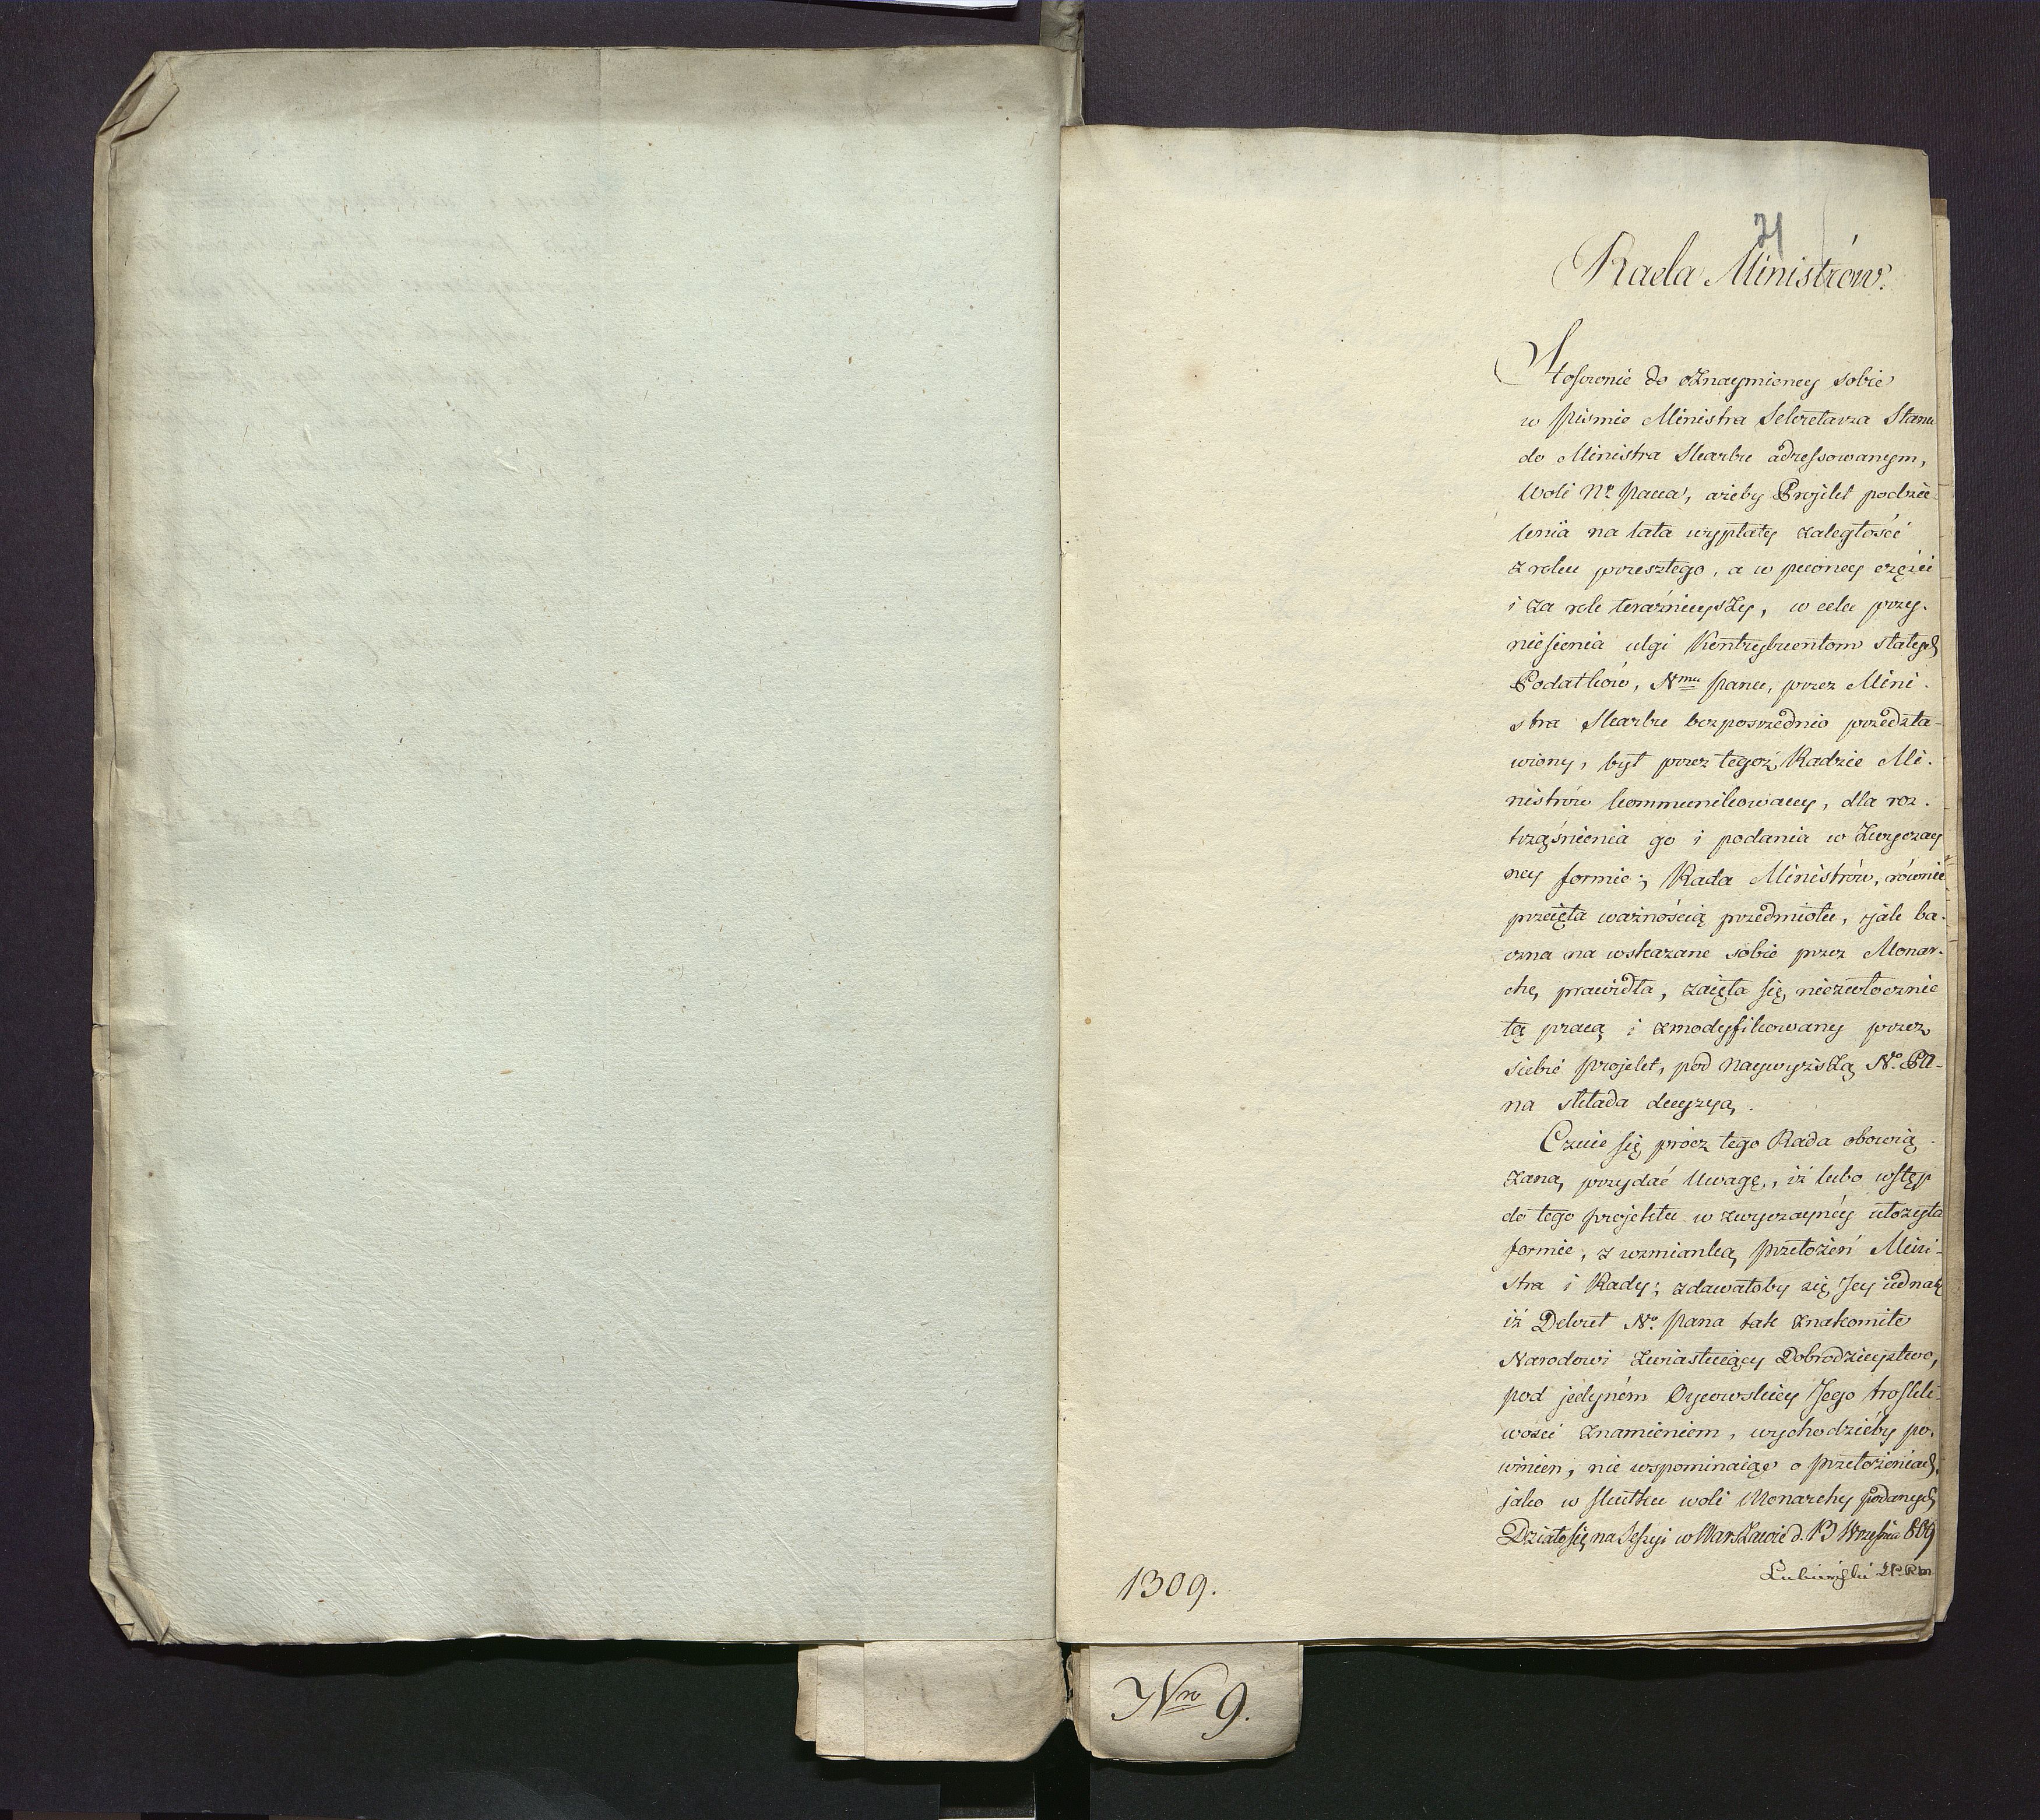 71
Rada Ministrów.
Stosownie do oznaymioney sobie
w piśmie Ministra Sekretarza Stanu
do Ministra Skarbu adressowanym,
Woli No Pana, ażeby Projekt podzie-
lenia na lata wypłaty zaległości
z roku przeszłego, a w pewney części
i za rok teraźnieyszy, w celu przy-
niesienia ulgi Kontrybuentom stałych
Podatków, Nmu Panu, przez Mini-
stra Skarbu bezpośrzednio przedsta-
wiony, był przez tegoż Radzie Mi-
nistrów kommunikowany, dla roz-
trząśnienia go i podania w zwyczay
ney formie; Rada Ministrów, równie
przeięta ważnością przedmiotu, jak ba-
czna na wskazane sobie przez Monar-
chę prawidła, zaięła się niezwłocznie
tą pracą i zmodyfikowany przez
siebie projekt, pod naywyższą No. Pa-
na składa decyzyą.
Czuie się prócz tego Rada obowią-
zaną przydać Uwagę, iż lubo wstęp
do tego projektu w zwyczayney ułożyła
formie, z wzmianką przełożeń Mini-
stra i Rady; zdawałoby się Jey iednak
iż Dekret No. Pana tak znakomite
Narodowi zwiastuiący Dobrodzieystwo,
pod jedyném Oycowskiey Jego troskli-
wości znamieniem, wychodziéby po-
winien, nie wspominaiąc o przełożeniach,
jako w skutku woli Monarchy podanych
Działo się na Sessyi w Warszawie d. 13 Września 809
Lubieński
1309.
Nro 9.